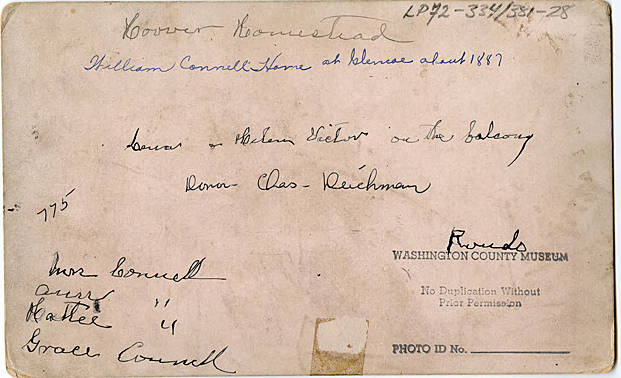 LP72-334/381-28
Hoover Homestead
William Connell Home at Glencoe about 1887
& Helen Victor on the balcony
Donor - Chas - Deichman
775
Rouds
WASHINGTON COUNTY MUSEUM
No Duplication Without
Prior Permission
PHOTO ID No.
Mrs Connell
"
Hattie "
Grace Connell